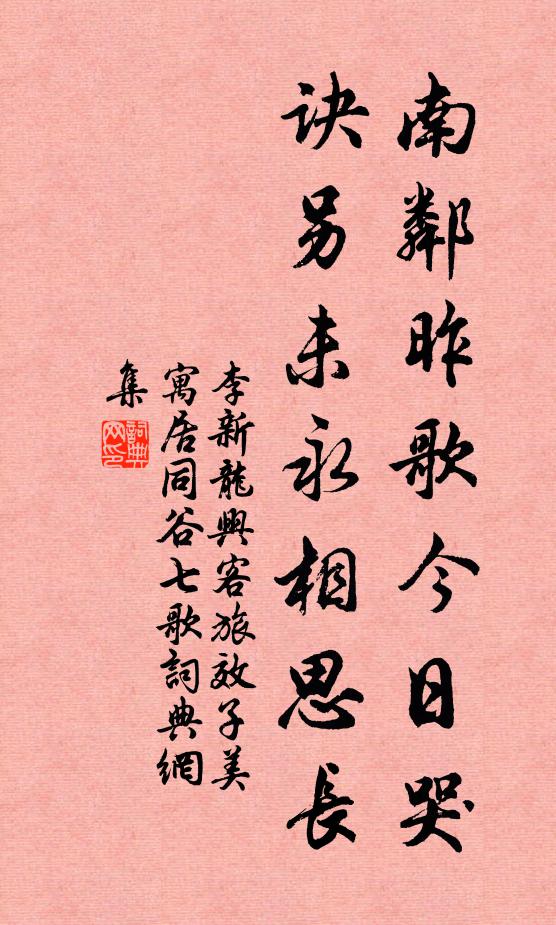 南鄰昨歌今日哭
訣另未永相思長
李新龍興客旅效子美
寓居同谷七歌詞典網
集
詞典網印